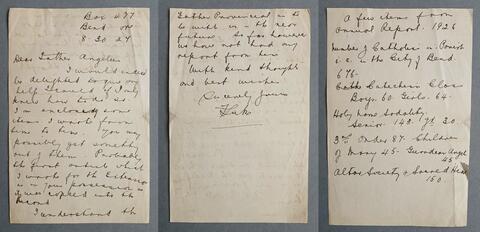 Box 477
Bend Ore
8-30-27
Dear Father Angelus
I would indeed
be delighted to give any
help desired if I only
knew how to do so
I am enclosing some
items I wrote from
time to time. You may
possibly get something
out of them. Probably
the front article which
I wrote for the
is in your possession as
it was copied into the
Record
I understand the
Father Provincial is to
be with us in the near
future. So far however
we have not had any
report from him
With kind thoughts
and best wishes
Sincerely yours
A few items from
Annual Report. 1926
Number of Catholics in Parish
i.e. in the City of Bend
676-
Cath Catechism Class
Boys. 60 Girls. 64.
Holy Name Sodality
Senior. 143. Jr. 30.
3rd Order 87. Children
of Mary 45- Guardian Angel
45
Altar Society & Sacred Heart
150.